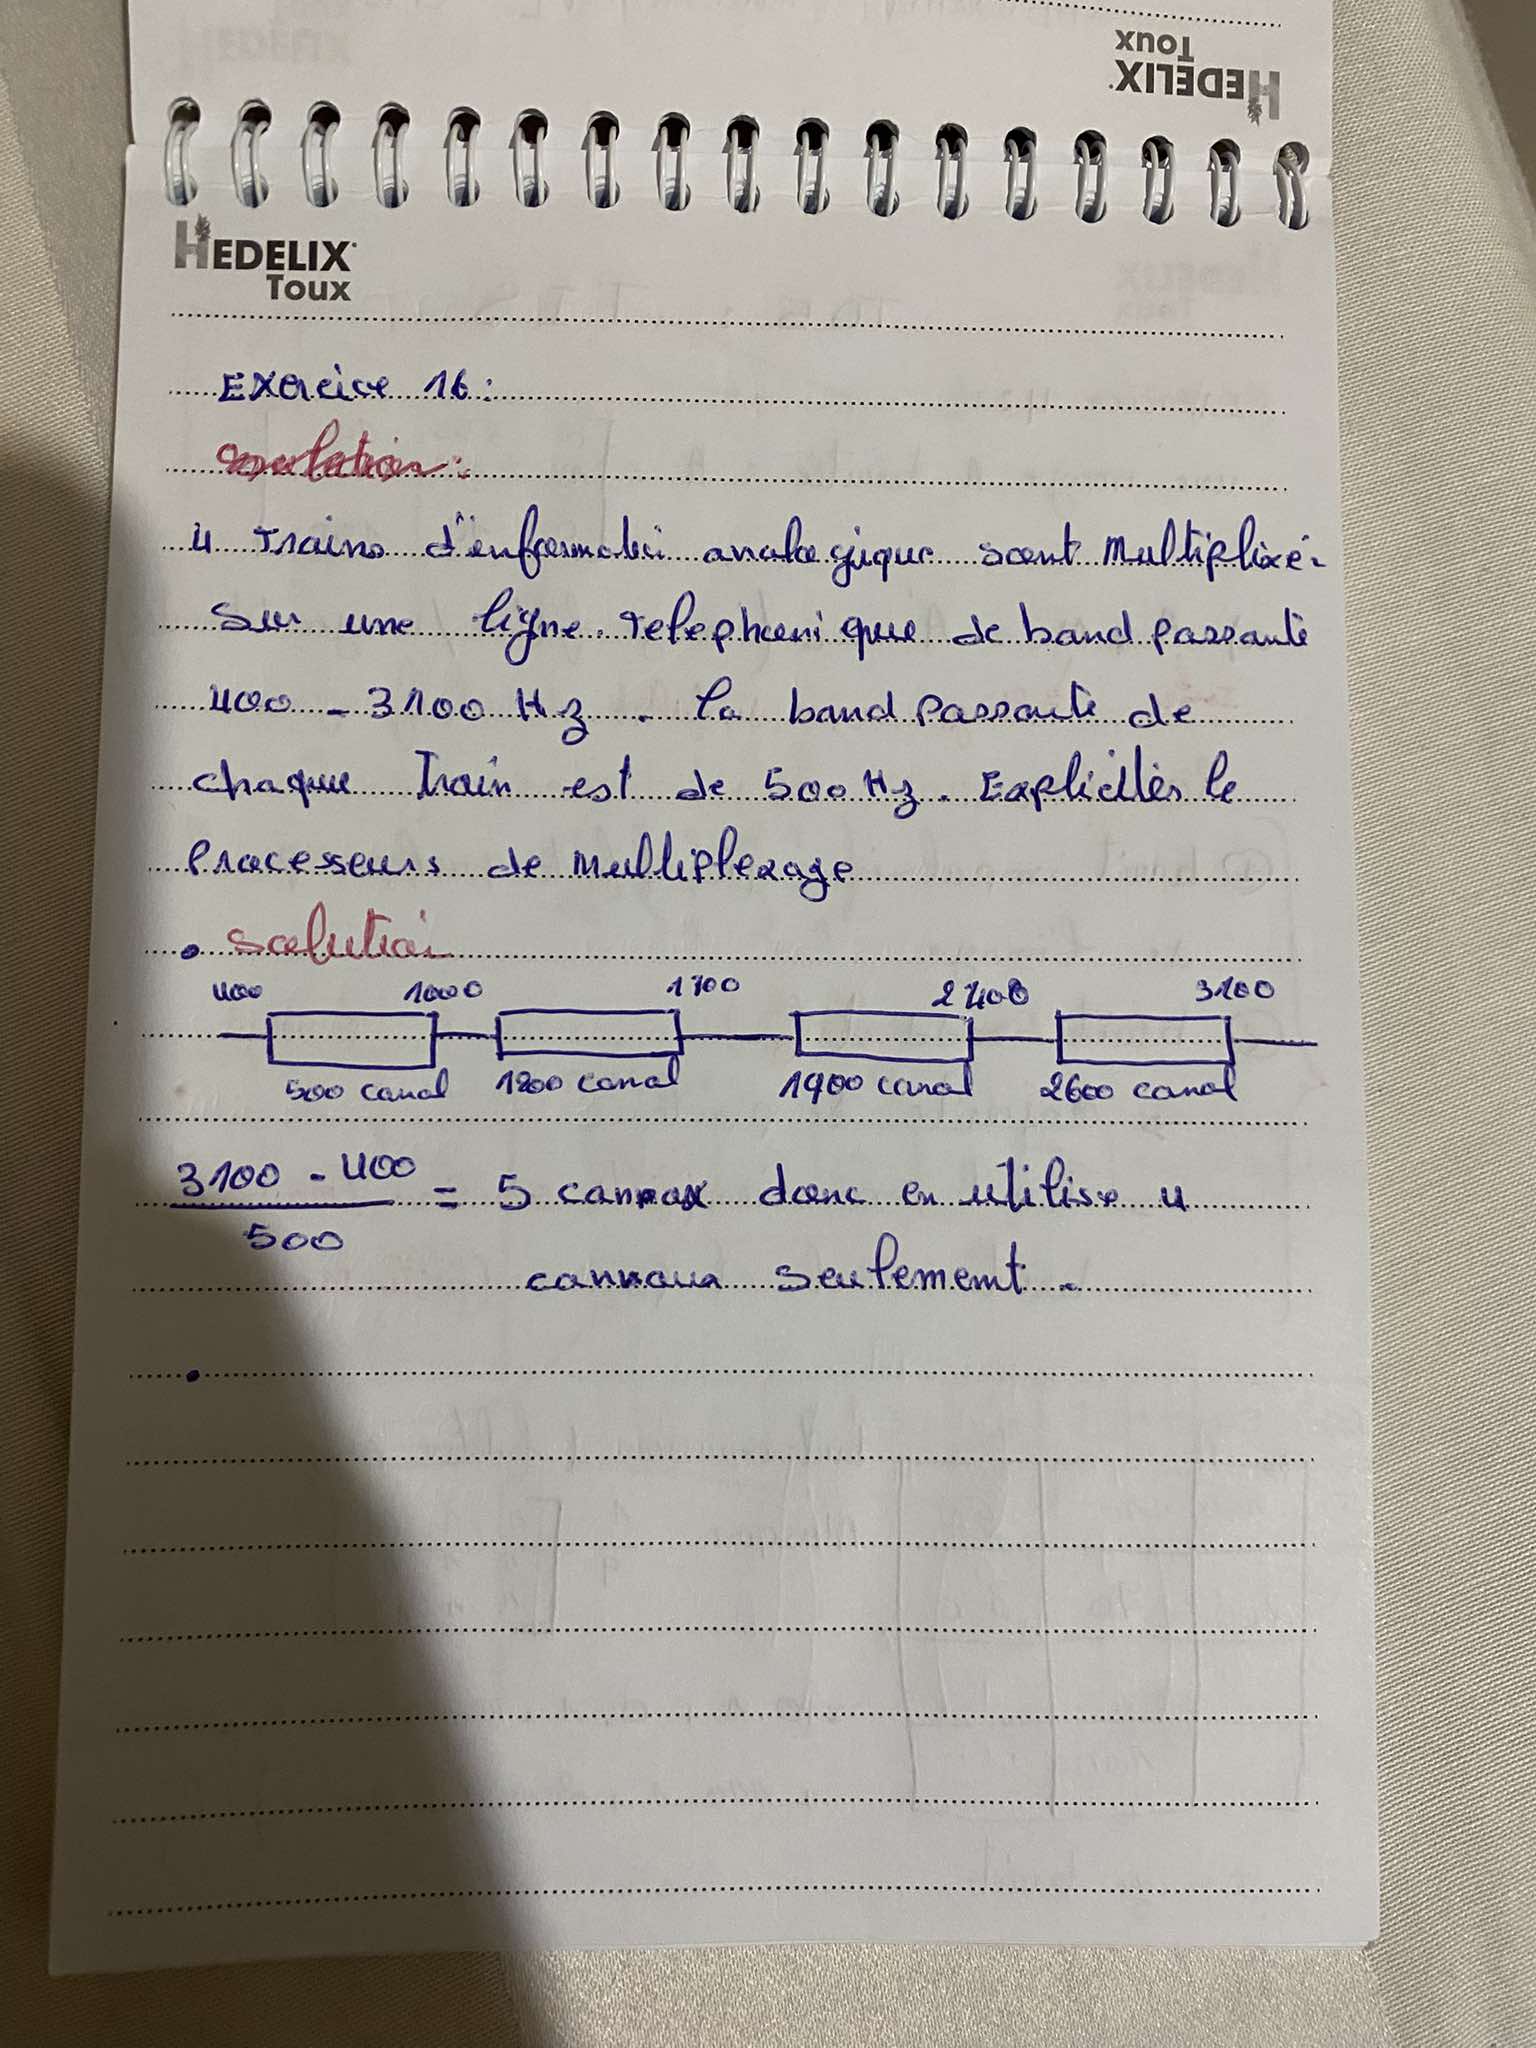 HEDELIX
Toux
HEDELIX
Toux
Exercice 16:
4 Trains d'enformation analogique sont Multiplixé
Sur une ligne Telephonique de band passante
400 - 3100 Hz. la band passante de
chaque Train est de 500 Hz. Explicites le
Processeurs de Multiplexage
• solution
400 1000 1700 2400 3100
500 canal 1200 canal 1900 canal 2600 canal
3100 - 400
500
= 5 cannax donc en utilise 4
cannaux seulement.